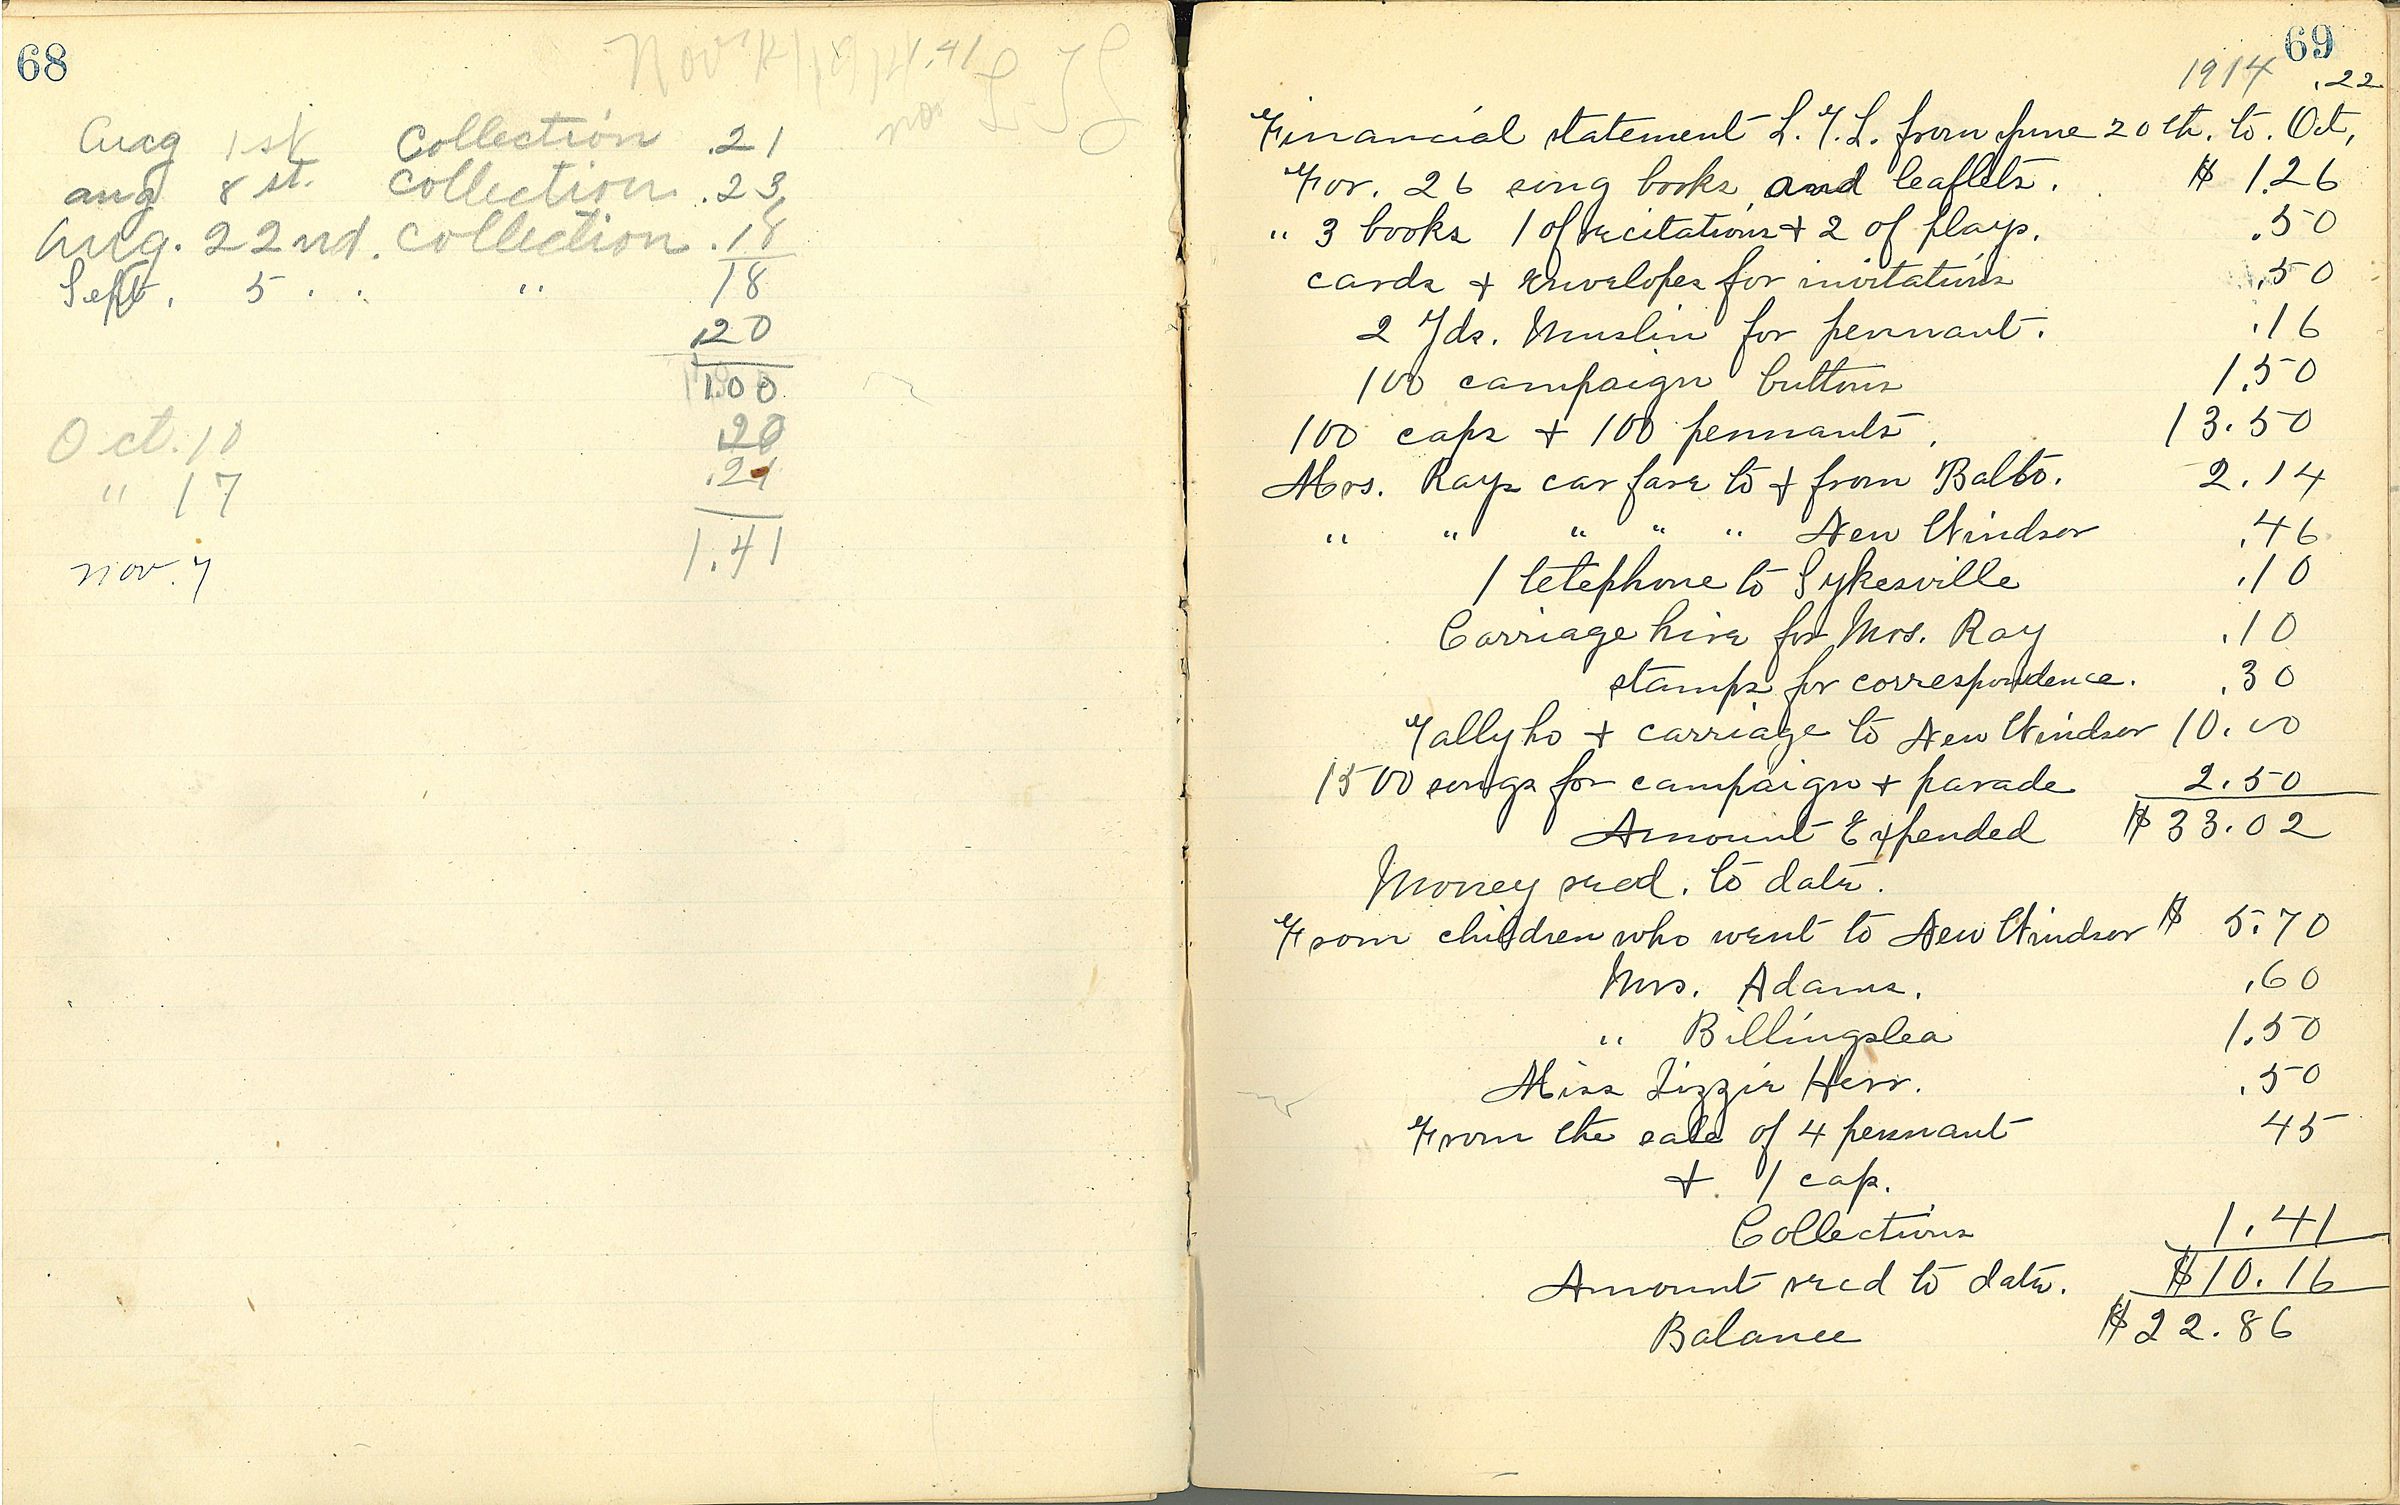 68
Nov 14 1914 1.41
L T L
Aug 1st Collection .21
aug 8 st. Collection .23
Aug. 22nd. Collection .18
Sept. 5 . . " 18
.20
1.00
Oct. 10 .20
" 17 .21
1.41
nov. 7
69
1914 .22
Financial statement L.T.L. from June 20th. to. Oct,
For. 26 song books, and leaflets. $ 1.26
" 3 books 1 of recitations + 2 of plays. .50
cards + envelopes for invitations .50
2 Yds. Muslin for pennant. .16
100 campaign buttons 1.50
100 caps + 100 pennants. 13.50
Mrs. Rays car fare to + from Balto. 2.14
" " " " " New Windsor .46
1 telephone to Sykesville .10
Carriage hire for Mrs. Ray .10
stamps for correspondence. .30
Tallyho + carriage to New Windsor 10.00
1500 songs for campaign + parade 2.50
Amount Expended $ 33.02
Money recd. to date.
From children who went to New Windsor $ 5.70
Mrs. Adams. .60
" Billingslea 1.50
Miss Lizzie Herr. .50
From the sale of 4 pennant 45
+ 1 cap.
Collections 1.41
Amount recd to date. $10.16
Balance $22.86